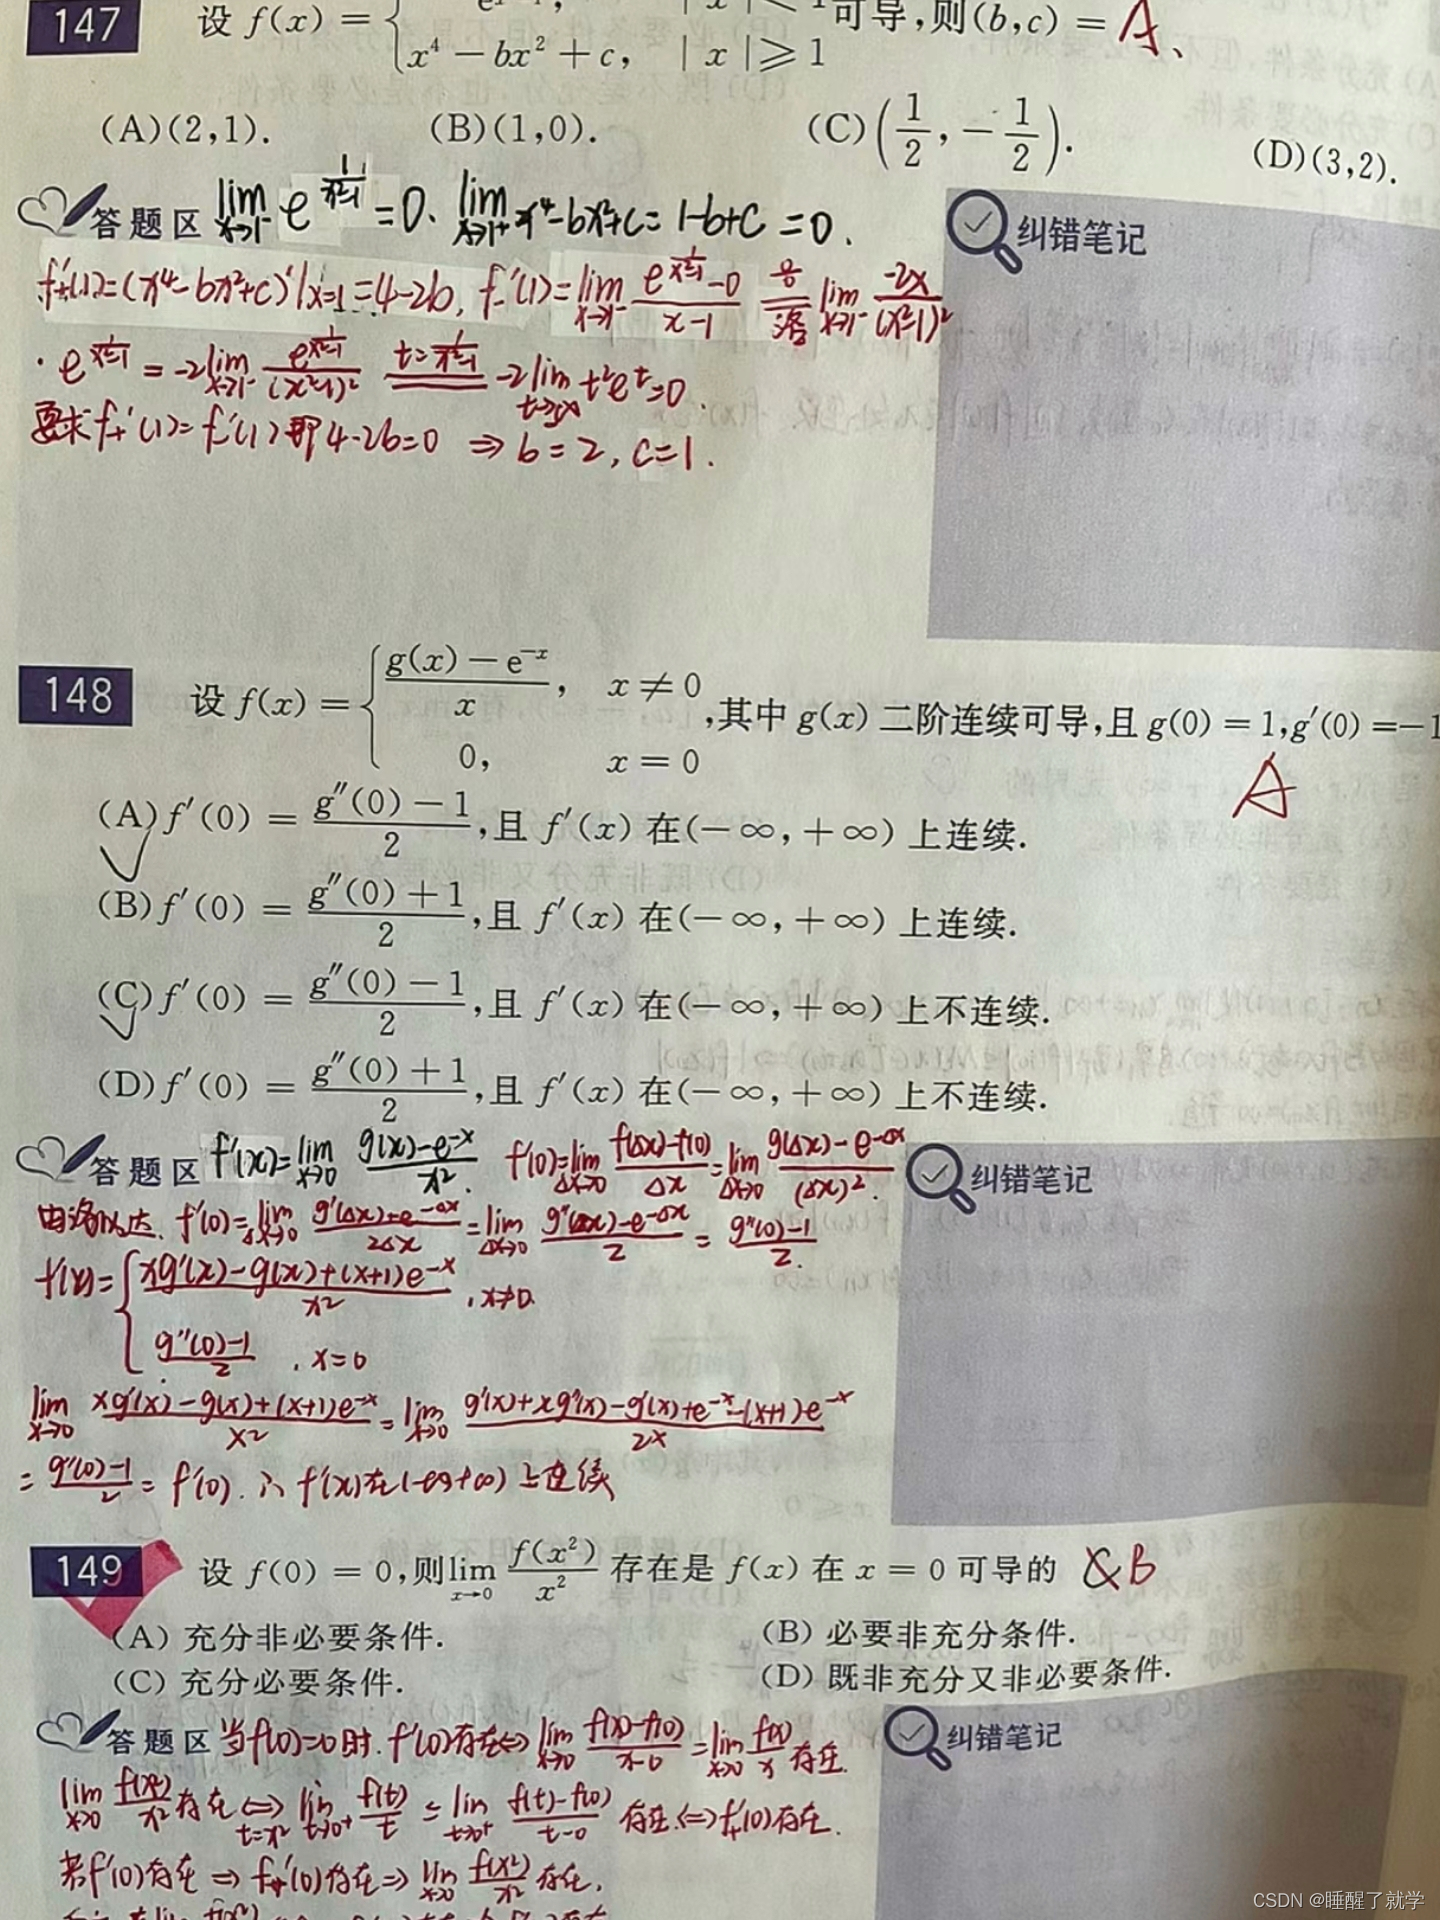 147 设 f(x) = { e , | x | < 1 可导,则(b,c) = A、
x⁴ − bx² + c, | x |⩾ 1
(A)(2,1). (B)(1,0). (C)(1/2, −1/2). (D)(3,2).
答题区 lim x→1⁻ e^(1/(x²-1)) =0. lim x→1⁺ x⁴-bx²+c= 1-b+c =0.
纠错笔记
f₊'(1)=(x⁴-bx²+c)'|x=1=4-2b, f₋'(1)=lim x→1⁻ (e^(1/(x²-1))-0)/(x-1) 0/0 洛 lim x→1⁻ -2x/(x²-1)²
· e^(1/(x²-1)) = -2 lim x→1⁻ e^(1/(x²-1))/(x²-1)² t=1/(x²-1) -2 lim t²eᵗ=0.
要求f₊'(1)=f₋'(1)即4-2b=0 ⇒ b=2, c=1.
148 设 f(x) = { (g(x) − e⁻ˣ)/x, x ≠ 0
0, x = 0 ,其中 g(x) 二阶连续可导,且 g(0) = 1,g′(0) =−1
A
(A) f′(0) = (g″(0) − 1)/2,且 f′(x) 在(− ∞, + ∞) 上连续.
(B) f′(0) = (g″(0) + 1)/2,且 f′(x) 在(− ∞, + ∞) 上连续.
(C) f′(0) = (g″(0) − 1)/2,且 f′(x) 在(− ∞, + ∞) 上不连续.
(D) f′(0) = (g″(0) + 1)/2,且 f′(x) 在(− ∞, + ∞) 上不连续.
答题区 f'(x)=lim x→0 (g(x)-e⁻ˣ)/x². f'(0)=lim Δx→0 (f(Δx)-f(0))/Δx = lim Δx→0 (g(Δx)-e^(-Δx))/(Δx)².
纠错笔记
由洛必达. f'(0)=lim Δx→0 (g'(Δx)+e^(-Δx))/2Δx = lim Δx→0 (g''(Δx)-e^(-Δx))/2 = (g''(0)-1)/2.
f'(x)= { (xg'(x)-g(x)+(x+1)e⁻ˣ)/x², x≠0.
(g''(0)-1)/2, x=0
lim x→0 (xg'(x)-g(x)+(x+1)e⁻ˣ)/x² = lim x→0 (g'(x)+xg''(x)-g'(x)+e⁻ˣ-(x+1)e⁻ˣ)/2x
= (g''(0)-1)/2 = f'(0). ∴ f'(x)在(-∞,+∞)上连续
149 设 f(0) = 0,则lim x→0 f(x²)/x² 存在是 f(x) 在 x = 0 可导的 B
(A) 充分非必要条件. (B) 必要非充分条件.
(C) 充分必要条件. (D) 既非充分又非必要条件.
答题区 当f(0)=0时. f'(0)存在⇔lim x→0 (f(x)-f(0))/(x-0) = lim x→0 f(x)/x 存在.
纠错笔记
lim x→0 f(x²)/x² 存在 ⇔ t=x² lim t→0⁺ f(t)/t = lim t→0⁺ (f(t)-f(0))/(t-0) 存在.⇔f₊'(0)存在.
若f'(0)存在 ⇒ f₊'(0)存在⇒ lim x→0 f(x²)/x² 存在,
CSDN @睡醒了就学